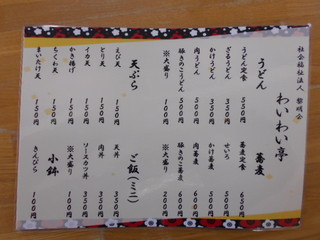 社会福祉法人 黎明会
わいわい亭
うどん
うどん定食 550円
ざるうどん
かけうどん
肉うどん 500円
きのこうどん 500円
※大盛り 150円
天ぷら
えび天 150円
とり天 150円
イカ天 150円
かき揚げ 150円
ちくわ天 150円
まいたけ天 150円
蕎麦
蕎麦定食 650円
せいろ
かけ蕎麦
肉蕎麦 600円
きのこ蕎麦 600円
※大盛り 200円
ご飯(ミニ)
天丼 350円
肉丼 350円
ソースカツ丼 350円
※大盛り 100円
小鉢
きんぴら 100円